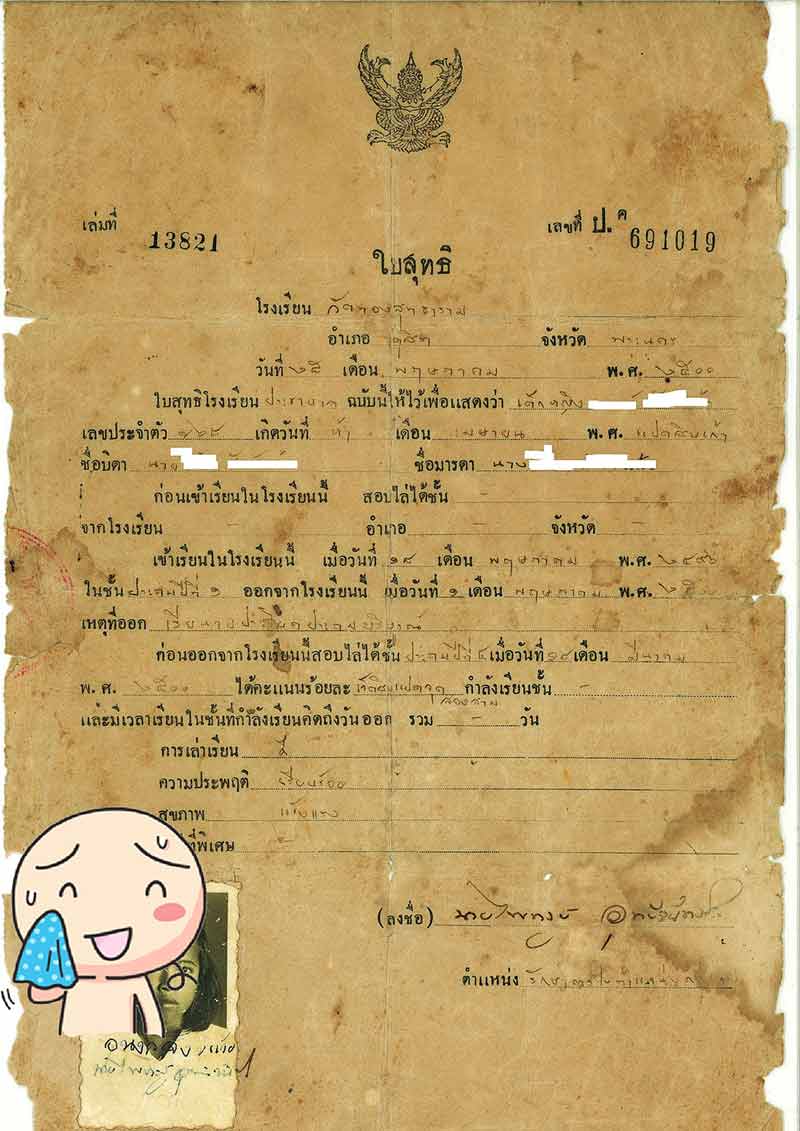 เล่มที่ 13821 เลขที่ ป.ค 691019
ใบสุทธิ
โรงเรียน วัดทองสุทธาราม
อำเภอ ดุสิต จังหวัด พระนคร
วันที่ ๒๕ เดือน พฤษภาคม พ.ศ. ๒๕๐๐
ใบสุทธิโรงเรียน ประชาบาล ฉบับนี้ให้ไว้เพื่อแสดงว่า เด็กหญิง
เลขประจำตัว เกิดวันที่ ห้า เดือน เมษายน พ.ศ. แปดสิบเก้า
ชื่อบิดา นาย ชื่อมารดา นาง
ก่อนเข้าเรียนในโรงเรียนนี้ สอบไล่ได้ชั้น -
จากโรงเรียน - อำเภอ - จังหวัด -
เข้าเรียนในโรงเรียนนี้ เมื่อวันที่ ๑๘ เดือน พฤษภาคม พ.ศ. ๒๔๙๖
ในชั้น ประถมปีที่ ๑ ออกจากโรงเรียนนี้ เมื่อวันที่ ๑ เดือน พฤษภาคม พ.ศ. ๒๕๐๐
เหตุที่ออก
ก่อนออกจากโรงเรียนนี้สอบไล่ได้ชั้น ประถมปีที่ ๔ เมื่อวันที่ ๑๘ เดือน มีนาคม
พ.ศ. ๒๕๐๐ ได้คะแนนร้อยละ กำลังเรียนชั้น -
และมีเวลาเรียนในชั้นที่กำลังเรียนคิดถึงวันออก รวม - วัน
การเล่าเรียน ดี
ความประพฤติ เรียบร้อย
สุขภาพ แข็งแรง
ที่พิเศษ -
(ลงชื่อ) นายไพฑูรย์
ตำแหน่ง